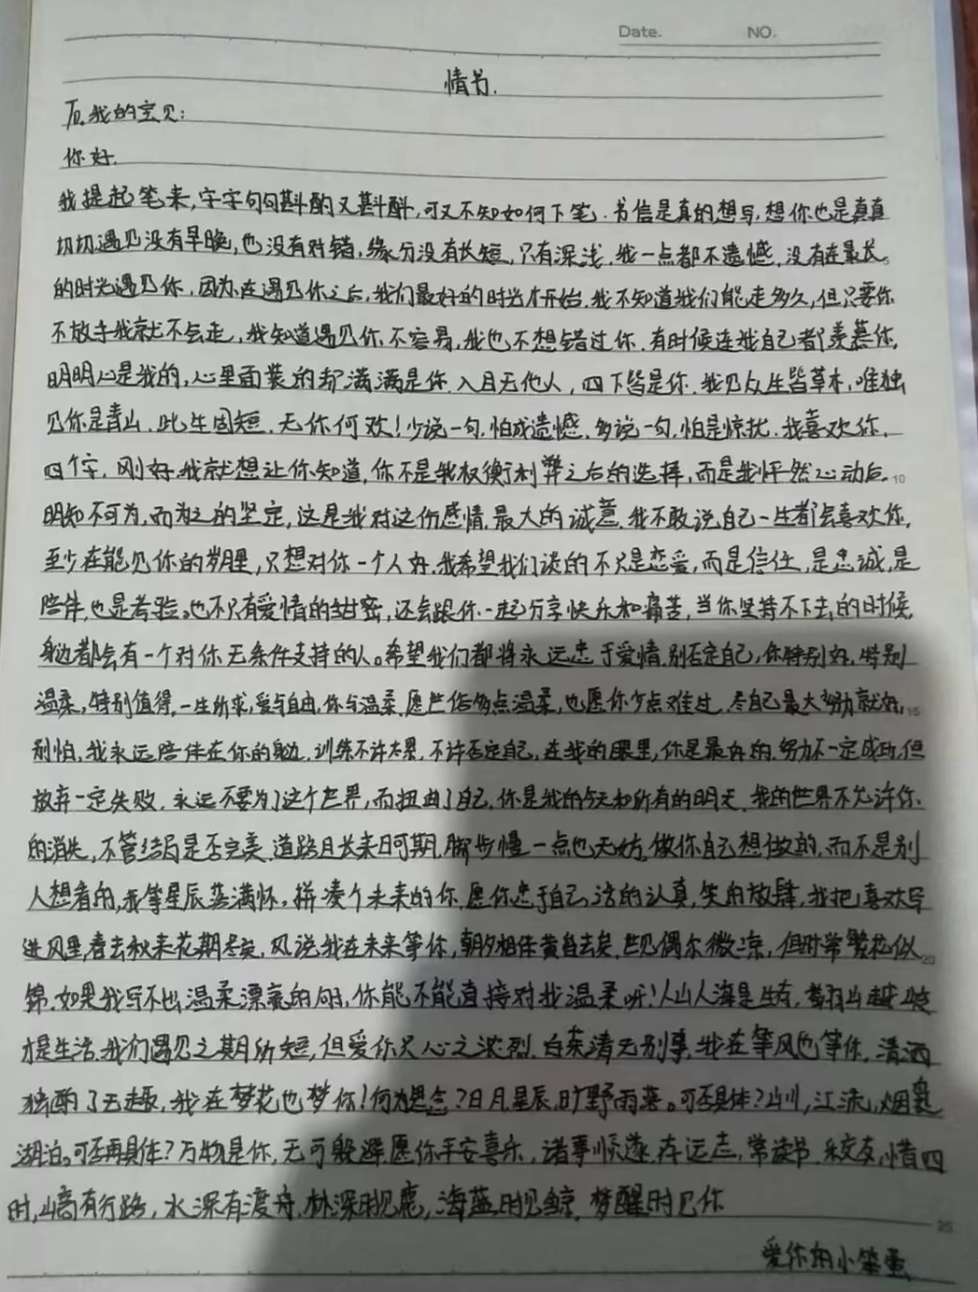 Date. NO.
情书.
我的宝贝:
你好.
我提起笔来,字字句句斟酌又斟酌,可又不知如何下笔.书信是真的想写,想你也是真真
切切遇见没有早晚,也没有对错,缘分没有长短,只有深浅.我一点都不遗憾,没有在最长
的时光遇见你,因为在遇见你之后,我们最好的时光才开始.我不知道我们能走多久,但只要你
不放手我就不会走,我知道遇见你不容易,我也不想错过你.有时候连我自己都羡慕你,
明明心是我的,心里面装的却满满是你.入目无他人,四下皆是你.我见众生皆草木,唯独
见你是青山.此生固短,无你何欢!少说一句,怕成遗憾,多说一句,怕是惊扰.我喜欢你,
四个字,刚好.我就想让你知道,你不是我权衡利弊之后的选择,而是我怦然心动后. 10
明知不可为,而为之的坚定,这是我对这份感情最大的诚意.我不敢说自己一生都会喜欢你,
至少在能见你的岁月里,只想对你一个人好.我希望我们谈的不只是恋爱,而是信任,是忠诚,是
陪伴,也是考验。也不只有爱情的甜密,还会跟你一起分享快乐和痛苦,当你坚持不下去的时候,
身边都会有一个对你无条件支持的人。希望我们都将永远忠于爱情.别否定自己,你特别好,特别
温柔,特别值得,一生所求,爱与自由,你与温柔.愿世俗多点温柔,也愿你少点难过.尽自己最大努力就好, 15
别怕,我永远陪伴在你的身边.训练不许太累,不许否定自己,在我的眼里,你是最棒的.努力不一定成功,但
放弃一定失败.永远不要为了这个世界,而扭曲了自己.你是我的今天和所有的明天.我的世界不允许你
的消失,不管结局是否完美.道路且长来日可期.脚步慢一点也无妨,做你自己想做的,而不是别
人想看的,我等星辰落满怀。拼凑个未来的你.愿你忠于自己,活的认真,笑的放肆,我把喜欢写
进风里,春去秋来花期尽矣,风说我在未来等你,朝夕相伴黄昏去矣,世见偶尔微凉,但时常繁花似 20
锦.如果我写不出温柔漂亮的句子,你能不能直接对我温柔呀!人山人海是生存,
才是生活.我们遇见之期所短,但爱你只心之浓烈.白茶清无别事,我在等风也等你,清酒
独酌了无趣,我在梦花也梦你!何为思念?日月星辰,旷野雨落。可否具体?山川,江流,烟袅
湖泊。可否再具体?万物是你,无可躲避.愿你平安喜乐,诸事顺遂.存远志,常读书.来交友,惜四
时,山高有行路,水深有渡舟,林深时见鹿,海蓝时见鲸.梦醒时见你 25
爱你的小笨蛋